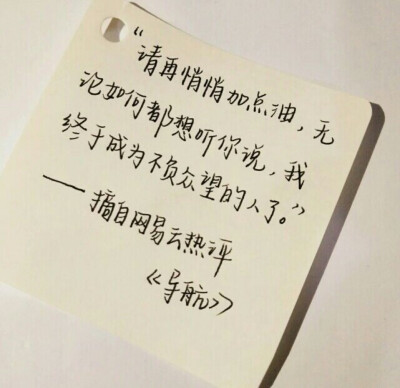 “请再悄悄加点油,无
论如何都想听你说,我
终于成为不负众望的人了。”
——摘自网易云热评
《导航》